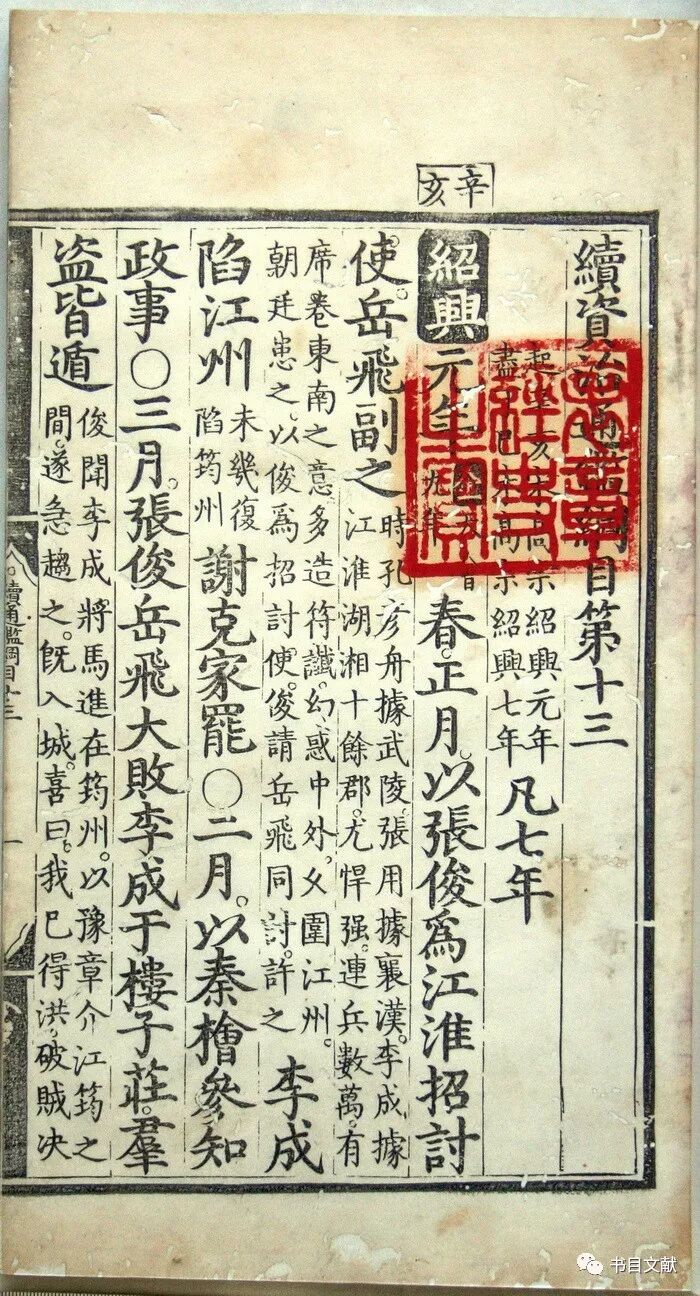 辛亥
續資治通鑑綱目第十三
起辛亥宋高宗紹興元年
盡丁巳宋高宗紹興七年
凡七年
紹興元年
金天會
九年
春。正月。以張俊爲江淮招討
使。岳飛副之
時孔彦舟據武陵。張用據襄漢。李成據
江淮湖湘十餘郡。尤悍强。連兵數萬。有
席卷東南之意。多造符讖。幻惑中外。久圍江州。
朝廷患之。以俊爲招討使。俊請岳飛同討。許之
李成
陷江州
未幾復
陷筠州
謝克家罷○二月。以秦檜參知
政事○三月。張俊岳飛大敗李成于樓子莊。羣
盜皆遁
俊聞李成將馬進在筠州。以豫章介江筠之
間。遂急趨之。旣入城。喜曰。我巳得洪。破賊决
續通鑑綱目十三
一
书目文献